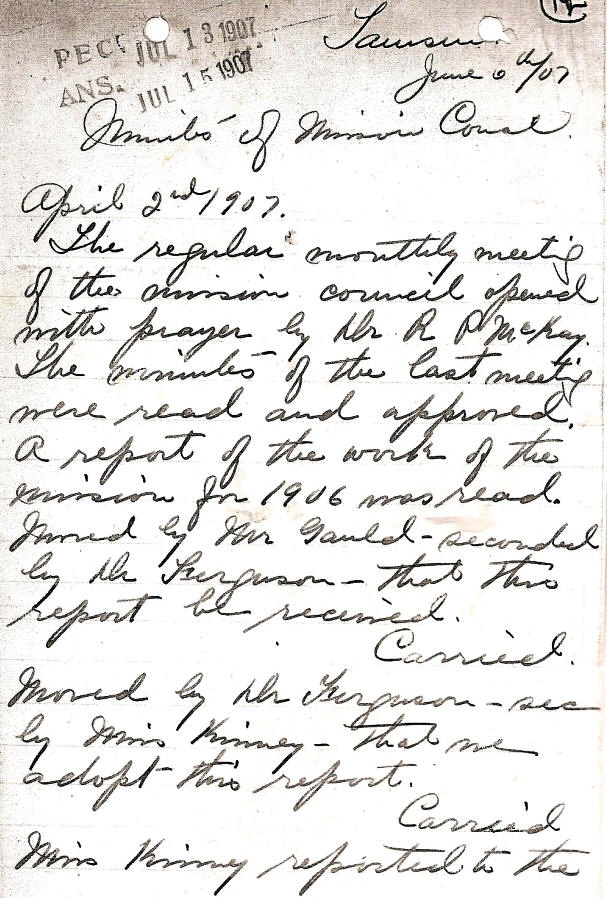 REC. JUL 13 1907
ANS. JUL 15 1907
Tamsui.
June 6th/07
Minutes of Mission Council.
April 2nd/1907.
The regular monthly meeting
of the mission council opened
with prayer by Dr R P McKay.
The minutes of the last meeting
were read and approved.
A report of the work of the
mission for 1906 was read.
Moved by Mr Gauld - seconded
by Dr Ferguson - that this
report be received.
Carried.
Moved by Dr Ferguson - sec
by Miss Kinney - that we
adopt this report.
Carried
Miss Kinney reported to the